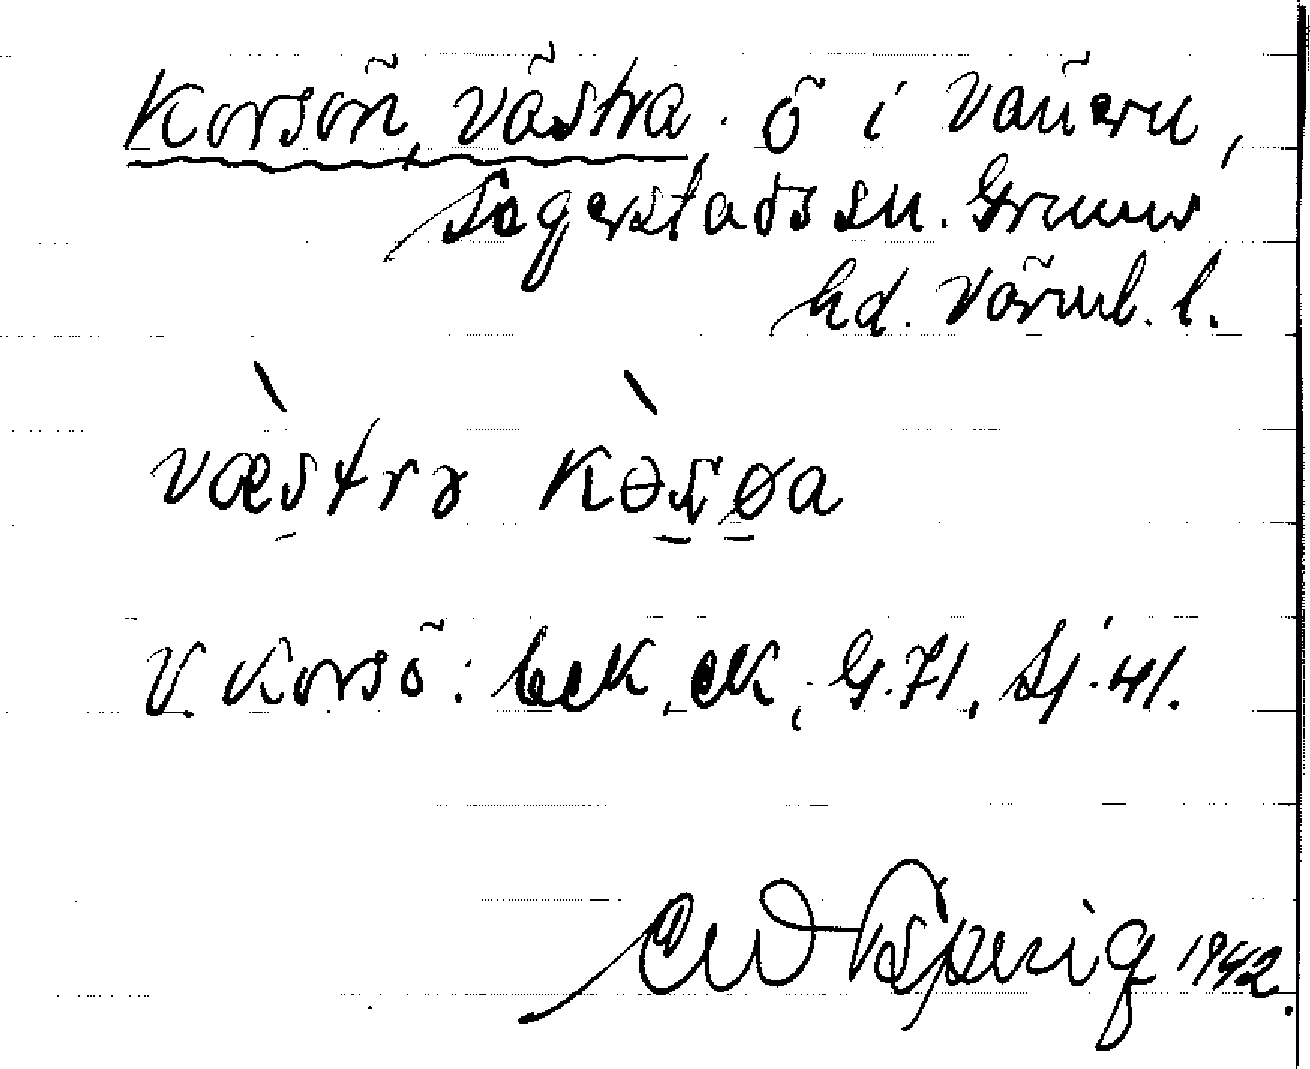 Korsön, västra. ö i Vänern,
Segerstads sn. Grums
hd. Värml. l.
væstrə kɵsøa
V. Korsö: eck, ek, G. 71, Sj. 41.
1942.